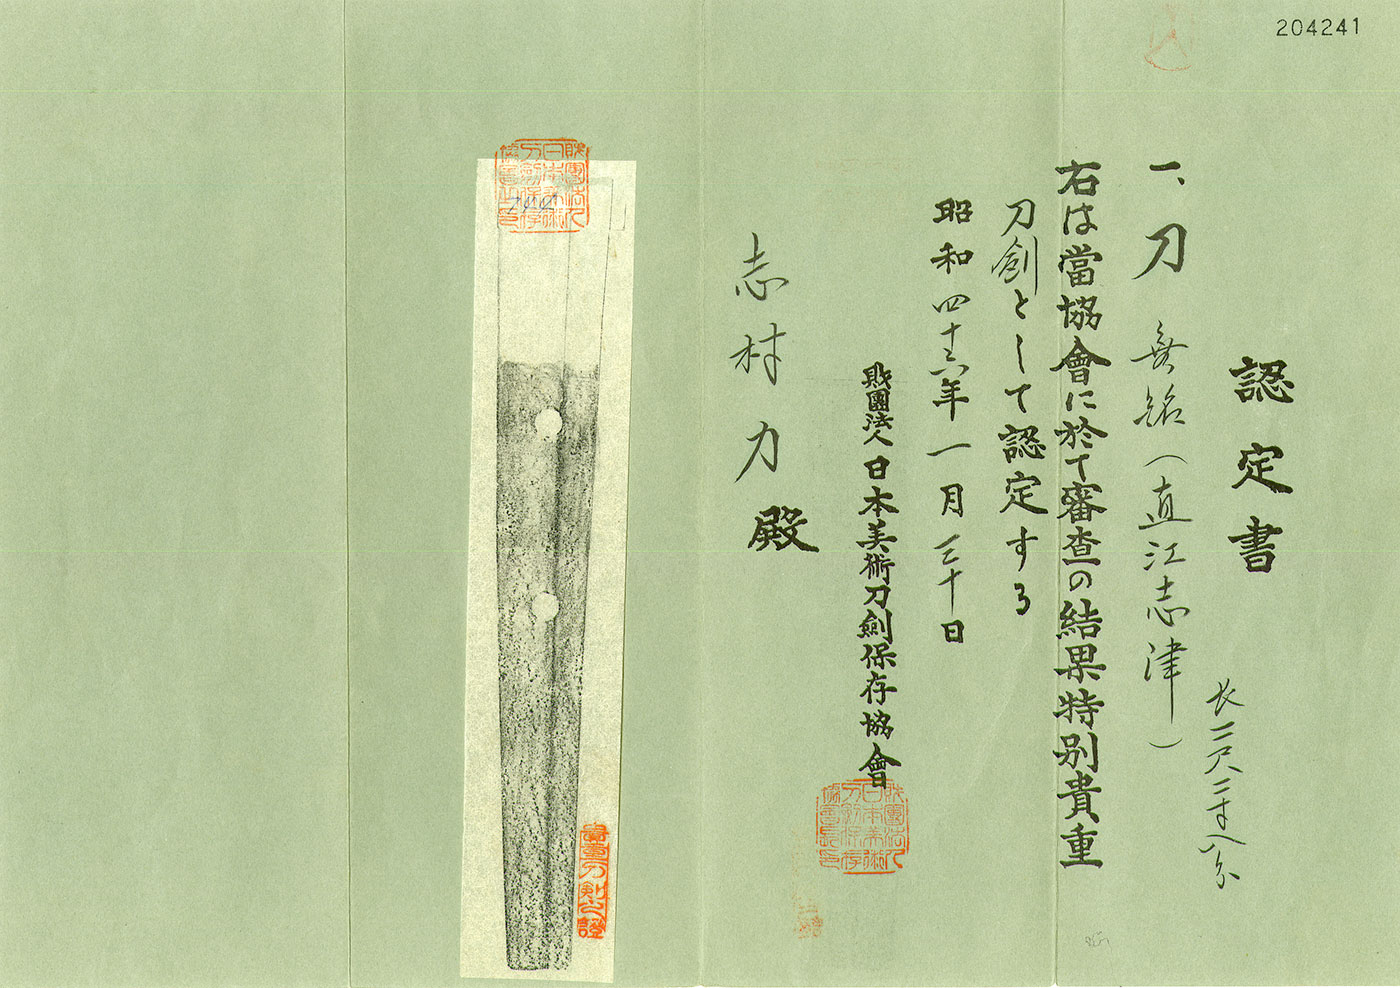 204241
認定書
長二尺二寸八分
一、刀 無銘（直江志津）
右は當協會に於て審査の結果特別貴重
刀劍として認定する
昭和四十六年一月三十日
財團法人日本美術刀劍保存協會
志村力殿
財團法人日本美術刀劍保存協會長印
貴重刀剣之證